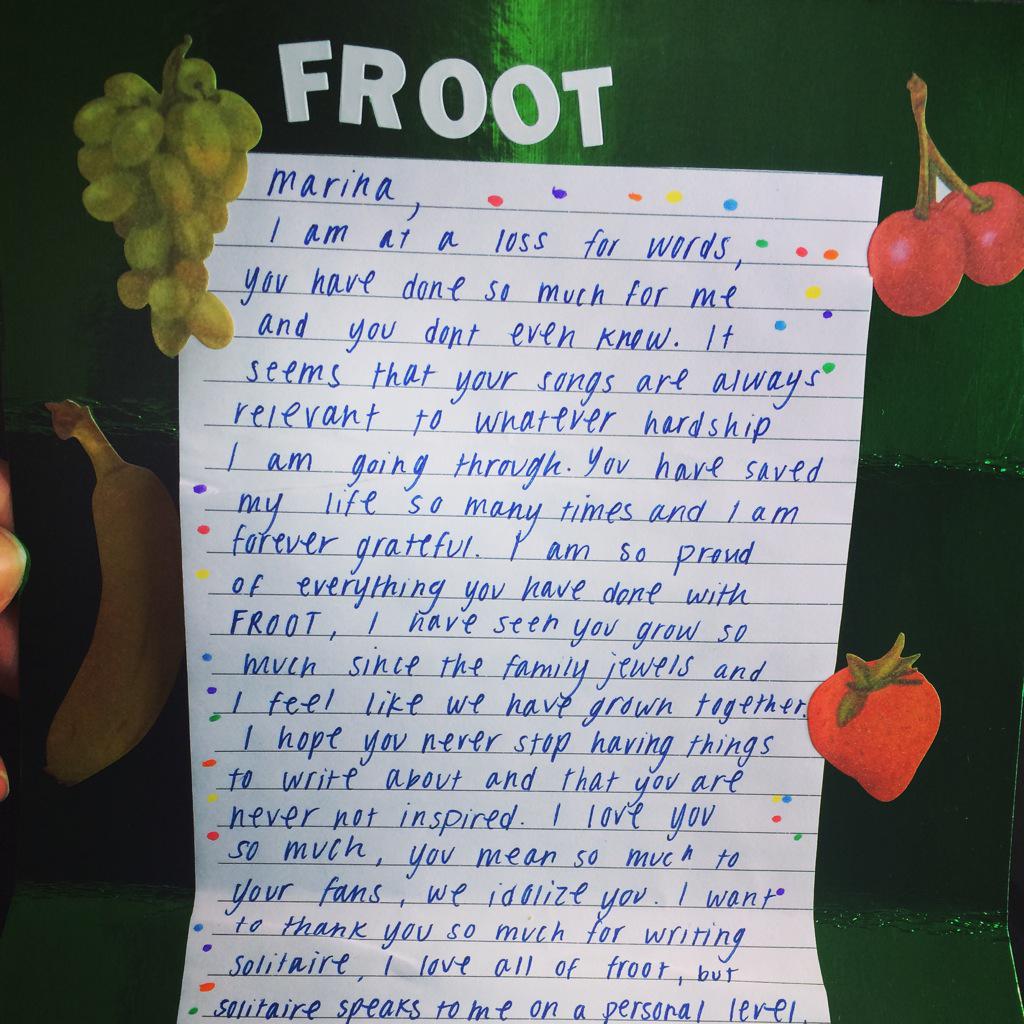 FROOT
marina,
I am at a loss for words,
you have done so much for me
and you dont even know. It
seems that your songs are always
relevant to whatever hardship
I am going through. You have saved
my life so many times and I am
forever grateful. I am so proud
of everything you have done with
FROOT, I have seen you grow so
much since the family jewels and
I feel like we have grown together.
I hope you never stop having things
to write about and that you are
never not inspired. I love you
so much, you mean so much to
your fans, we idolize you. I want
to thank you so much for writing
solitaire, I love all of froot, but
solitaire speaks to me on a personal level.